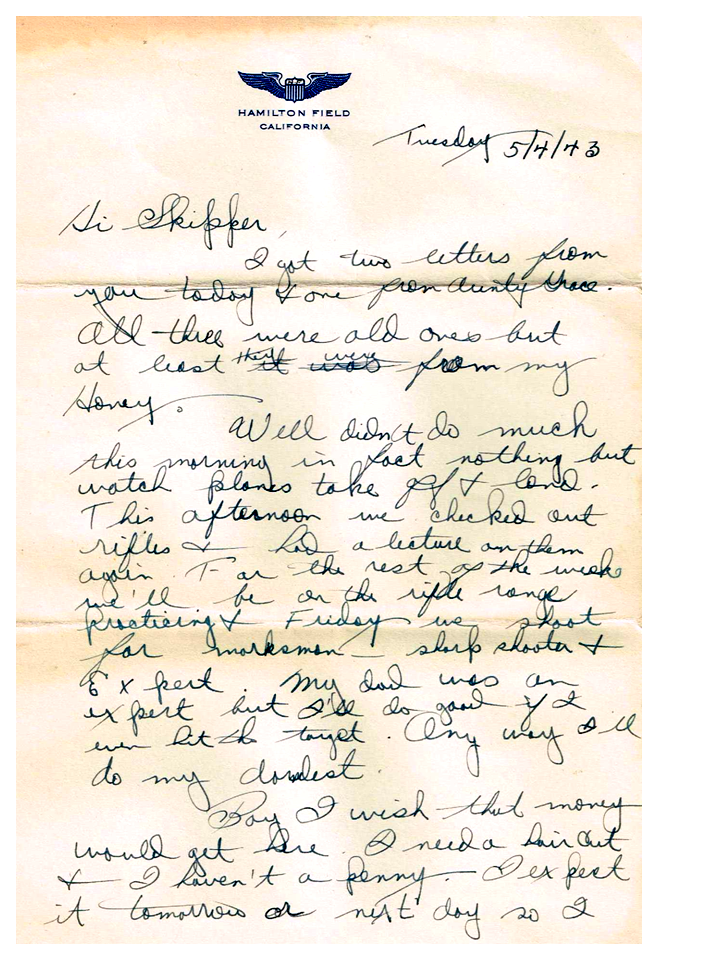 HAMILTON FIELD
CALIFORNIA
Tuesday 5/4/43
Hi Skipper,
I got two letters from
you today & one from Aunty Grace.
All three were old ones but
at least they were from my
Honey.
Well didn't do much
this morning in fact nothing but
watch planes take off & land.
This afternoon we checked out
rifles & had a lecture on them
again. For the rest of the week
we'll be on the rifle range
practicing & Friday we shoot
for marksman - sharp shooter &
Expert. My dad was an
expert but I'll do good if I
even hit the target. Any way I'll
do my darndest.
Boy I wish that money
would get here. I need a hair cut
& I haven't a penny. - I expect
it tomorrow or next day so I